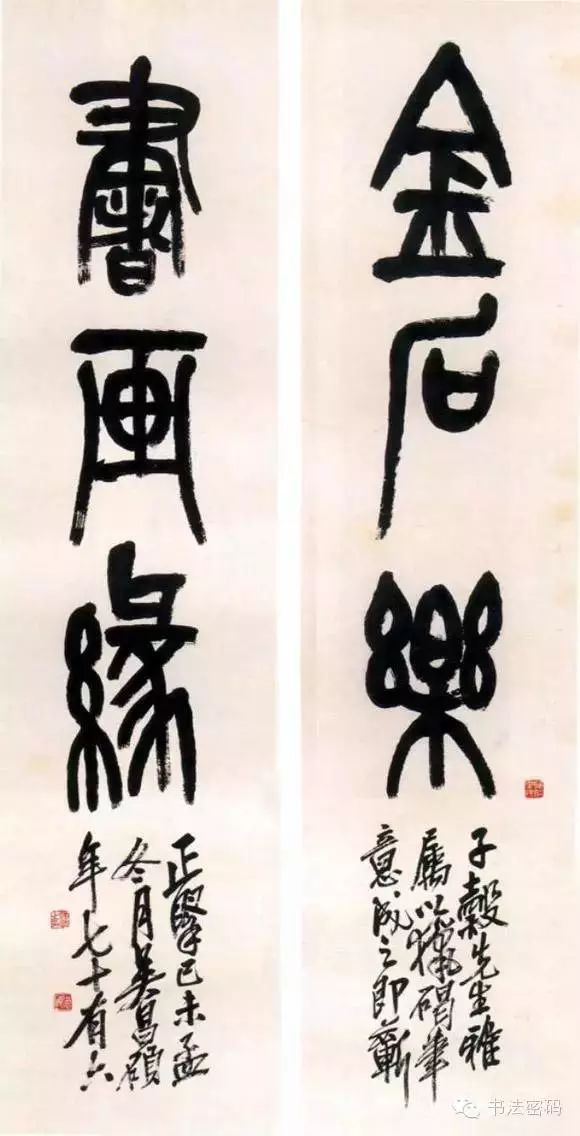 金石樂
子穀先生雅
屬以獵碣筆
意成之即蘄
書畫緣
正己未孟
冬月吳昌碩
年七十有六
书法密码